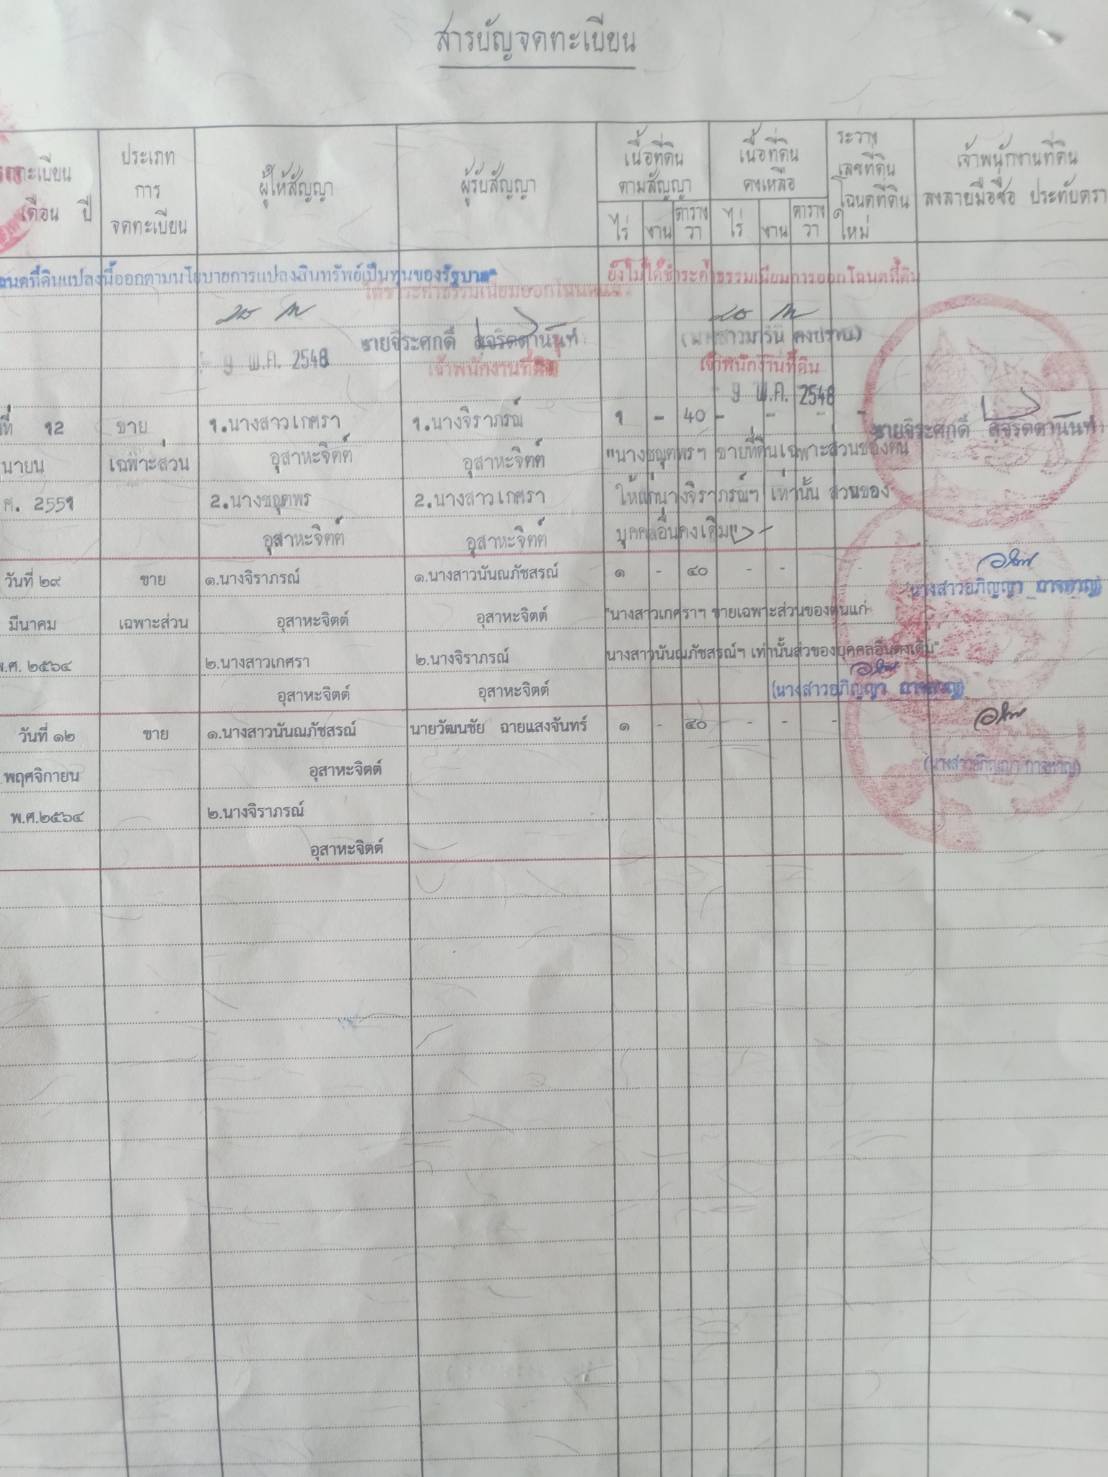 สารบัญจดทะเบียน
ประเภท การ จดทะเบียน
ผู้ให้สัญญา
ผู้รับสัญญา
เนื้อที่ดิน ตามสัญญา
เนื้อที่ดิน คงเหลือ
ระวาง เลขที่ดิน โฉนดที่ดิน ใหม่
เจ้าพนักงานที่ดิน ลงลายมือชื่อ ประทับตรา
เดือน ปี
ไร่ งาน ตารางวา ไร่ งาน ตารางวา
ที่ดินแปลงนี้ออกตามนโยบายการแปลงสินทรัพย์เป็นทุนของรัฐบาล" ยังไม่ได้ชำระค่าธรรมเนียมการออกโฉนดที่ดิน
ได้ชำระค่าธรรมเนียมออกโฉนดแล้ว
นายจิระศักดิ์ สุจริตตานันท์
เจ้าพนักงานที่ดิน เจ้าพนักงานที่ดิน
9 พ.ค. 2548 - 9 พ.ค. 2548
ที่ 12 ขาย 1.นางสาวเกศรา 1.นางจิราภรณ์ 1 - 40 - - - -
นายจิระศักดิ์ สุจริตตานันท์
นายน เฉพาะส่วน อุสาหะจิตต์ อุสาหะจิตต์ ขายที่ดินเฉพาะส่วนของตน
ศ. 2551 2. 2.นางสาวเกศรา ให้แก่นางจิราภรณ์ฯ เท่านั้น ส่วนของ
อุสาหะจิตต์ อุสาหะจิตต์ บุคคลอื่นคงเดิม"
วันที่ ๒๙ ขาย ๑.นางจิราภรณ์ ๑.นางสาวนันณภัชสรณ์ ๑ - ๔๐ - - - -
มีนาคม เฉพาะส่วน อุสาหะจิตต์ อุสาหะจิตต์ "นางสาวเกศราฯ ขายเฉพาะส่วนของตนแก่
พ.ศ. ๒๕๖๔ ๒.นางสาวเกศรา ๒.นางจิราภรณ์ นางสาวนันณภัชสรณ์ฯ เท่านั้นส่วของบุคคลอื่นคงเดิม"
อุสาหะจิตต์ อุสาหะจิตต์ (นางสาวอภิญญา
วันที่ ๑๒ ขาย ๑.นางสาวนันณภัชสรณ์ นายวัฒนชัย ฉายแสงจันทร์ ๑ - ๔๐ - - - -
พฤศจิกายน อุสาหะจิตต์ (นางสาวอภิญญา
พ.ศ.๒๕๖๔ ๒.นางจิราภรณ์
อุสาหะจิตต์